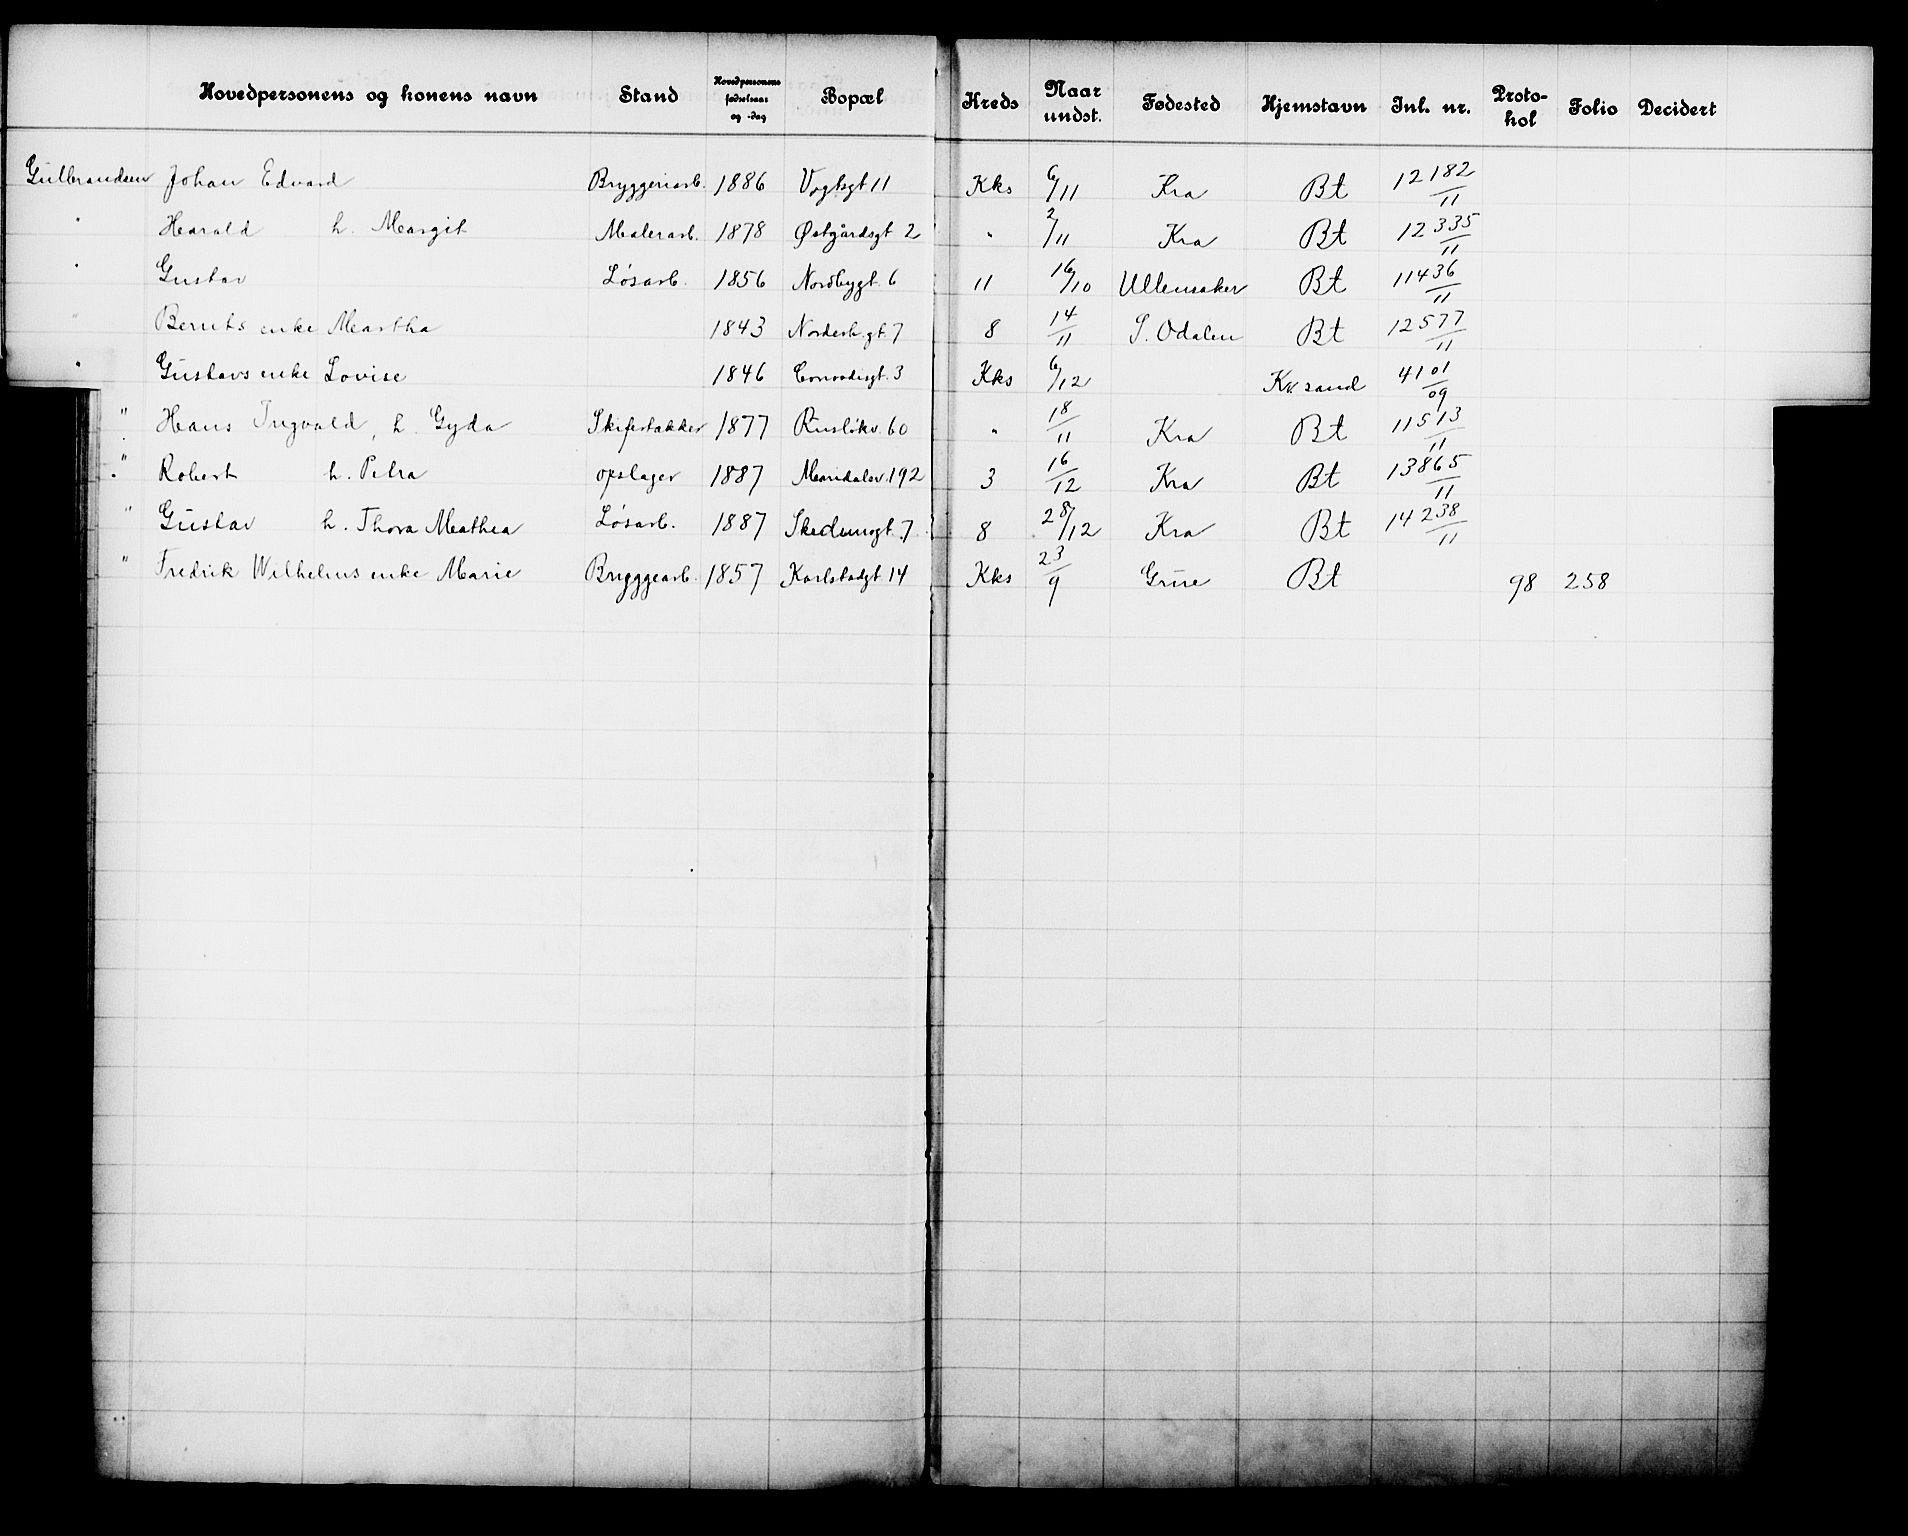 Hovedpersonens og konens navn Stand Hovedpersonens fødselsaar og -dag Bopæl Kreds Naar undst. Fødested Hjemstavn Inl. nr. Proto-kol Folio Decidert
Gulbrandsen Johan Edvard Bryggeriarb. 1886 Vogtsgt 11 Kks 6/11 Kra Bt 12182/11
" Harald h. Margit Malerarb. 1878 Østgårdsgt 2 " 2/11 Kra Bt 12335/11
" Gustav Løsarb. 1856 Nordbygt. 6 11 16/10 Ullensaker Bt 11436/11
" Bernts enke Martha 1843 Norderh.gt. 7 8 14/11 S. Odalen Bt 12577/11
" Gustavs enke Lovise 1846 Conradisgt. 3 Kks 6/12 Kr. sand 4101/09
" Hans Ingvald, h. Gyda Skifertækker 1877 Rusløkv. 60 " 18/11 Kra Bt 11513/11
" Robert h. Petra opslager 1887 Maridalsv. 192 3 16/12 Kra Bt 13865/11
" Gustav h. Thora Mathea Løsarb. 1887 Skedsmogt. 7 8 28/12 Kra Bt 14238/11
" Fredrik Wilhelms enke Marie Bryggearb. 1857 Karlstadgt 14 Kks 23/9 Grue Bt 98 258